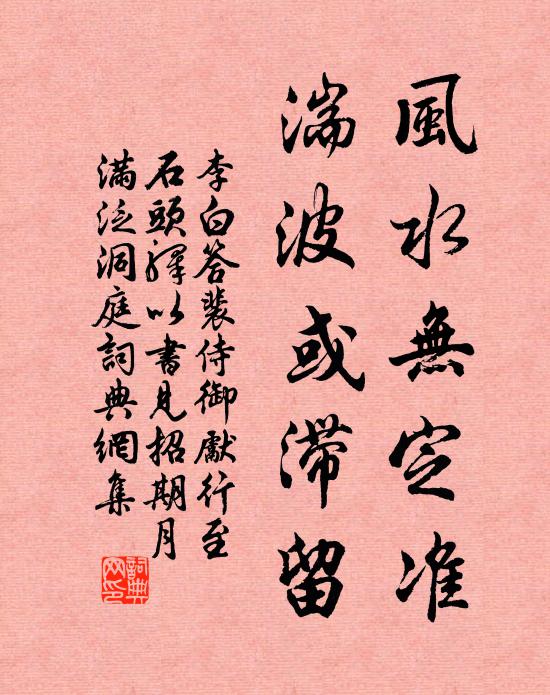 風水無定准
湍波或滞留
李白答裴侍御獻行至
石頭驛以書見招期月
滿泛洞庭詞典網集
詞典
网印